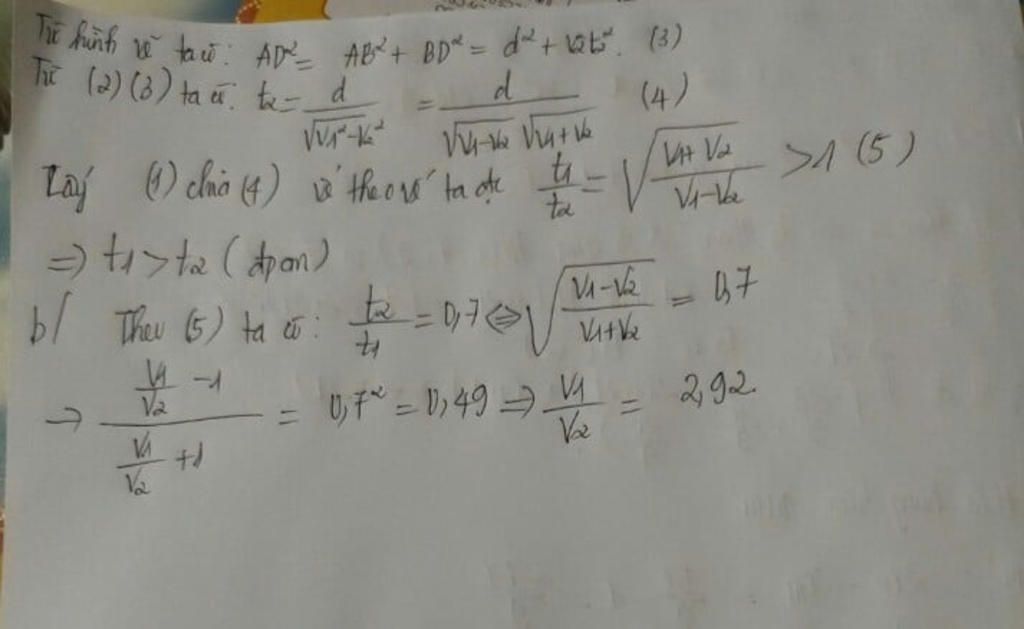 Từ hình vẽ ta có: AD² = AB² + BD² = d² + V2²t2². (3)
Từ (2) (3) ta có. t2 = d / √(V1² - V2²) = d / (√(V1-V2) √(V1+V2)) (4)
Lấy (1) chia (4) vế theo vế ta đc t1/t2 = √((V1+V2)/(V1-V2)) > 1 (5)
=> t1 > t2 (đpcm)
b/ Theo (5) ta có: t2/t1 = 0,7 <=> √((V1-V2)/(V1+V2)) = 0,7
→ (V1/V2 - 1)/(V1/V2 + 1) = 0,7² = 0,49 => V1/V2 = 2,92.